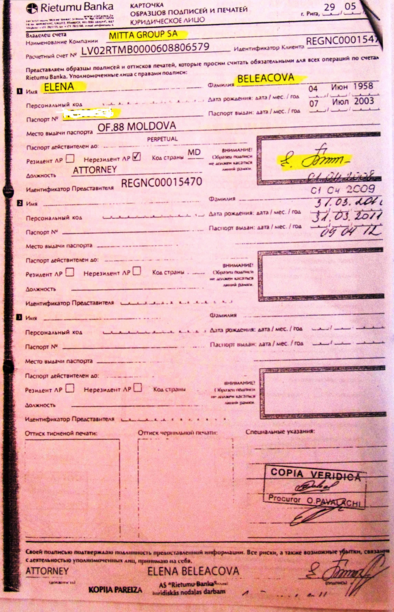 Rietumu Banka
КАРТОЧКА
ОБРАЗЦОВ ПОДПИСЕЙ И ПЕЧАТЕЙ
ЮРИДИЧЕСКОЕ ЛИЦО
г. Рига, 29 05
Владелец счета
Наименование Компании MITTA GROUP SA
Расчетный счет № LV02RTMB0000608806579 Идентификатор Клиента REGNC00015470
Представляем образцы подписей и оттисков печатей, которые просим считать обязательными для всех операций по счетам
Rietumu Banka. Уполномоченные лица с правами подписи:
1 Имя ELENA Фамилия BELEACOVA
Персональный код Дата рождения: дата / мес. / год 04 Июн 1958
Паспорт № Паспорт выдан: дата / мес. / год 07 Июл 2003
Место выдачи паспорта OF.88 MOLDOVA
Паспорт действителен до: PERPETUAL
Резидент ЛР Нерезидент ЛР Код страны MD
ВНИМАНИЕ!
Должность ATTORNEY
Идентификатор Представителя REGNC00015470
01 04 2009
2 Имя Фамилия
Персональный код Дата рождения: дата / мес. / год 31.03.2011
Паспорт № Паспорт выдан: дата / мес. / год 04 04 12
Место выдачи паспорта
Паспорт действителен до:
Резидент ЛР Нерезидент ЛР Код страны
ВНИМАНИЕ!
Должность
Идентификатор Представителя
3 Имя Фамилия
Персональный код Дата рождения: дата / мес. / год
Паспорт № Паспорт выдан: дата / мес. / год
Место выдачи паспорта
Паспорт действителен до:
Резидент ЛР Нерезидент ЛР Код страны
ВНИМАНИЕ!
Должность
Идентификатор Представителя
Оттиск тисненой печати: Оттиск чернильной печати: Специальные указания:
COPIA VERIDICA
Procuror O.PAVALACHI
Своей подписью подтверждаю подлинность предоставленной информации. Все риски, а также возможные убытки, связанные
с деятельностью уполномоченных лиц, принимаю на себя.
ATTORNEY ELENA BELEACOVA
KOPIJA PAREIZA
AS "Rietumu Banka"
Juridiskās nodaļas darbam